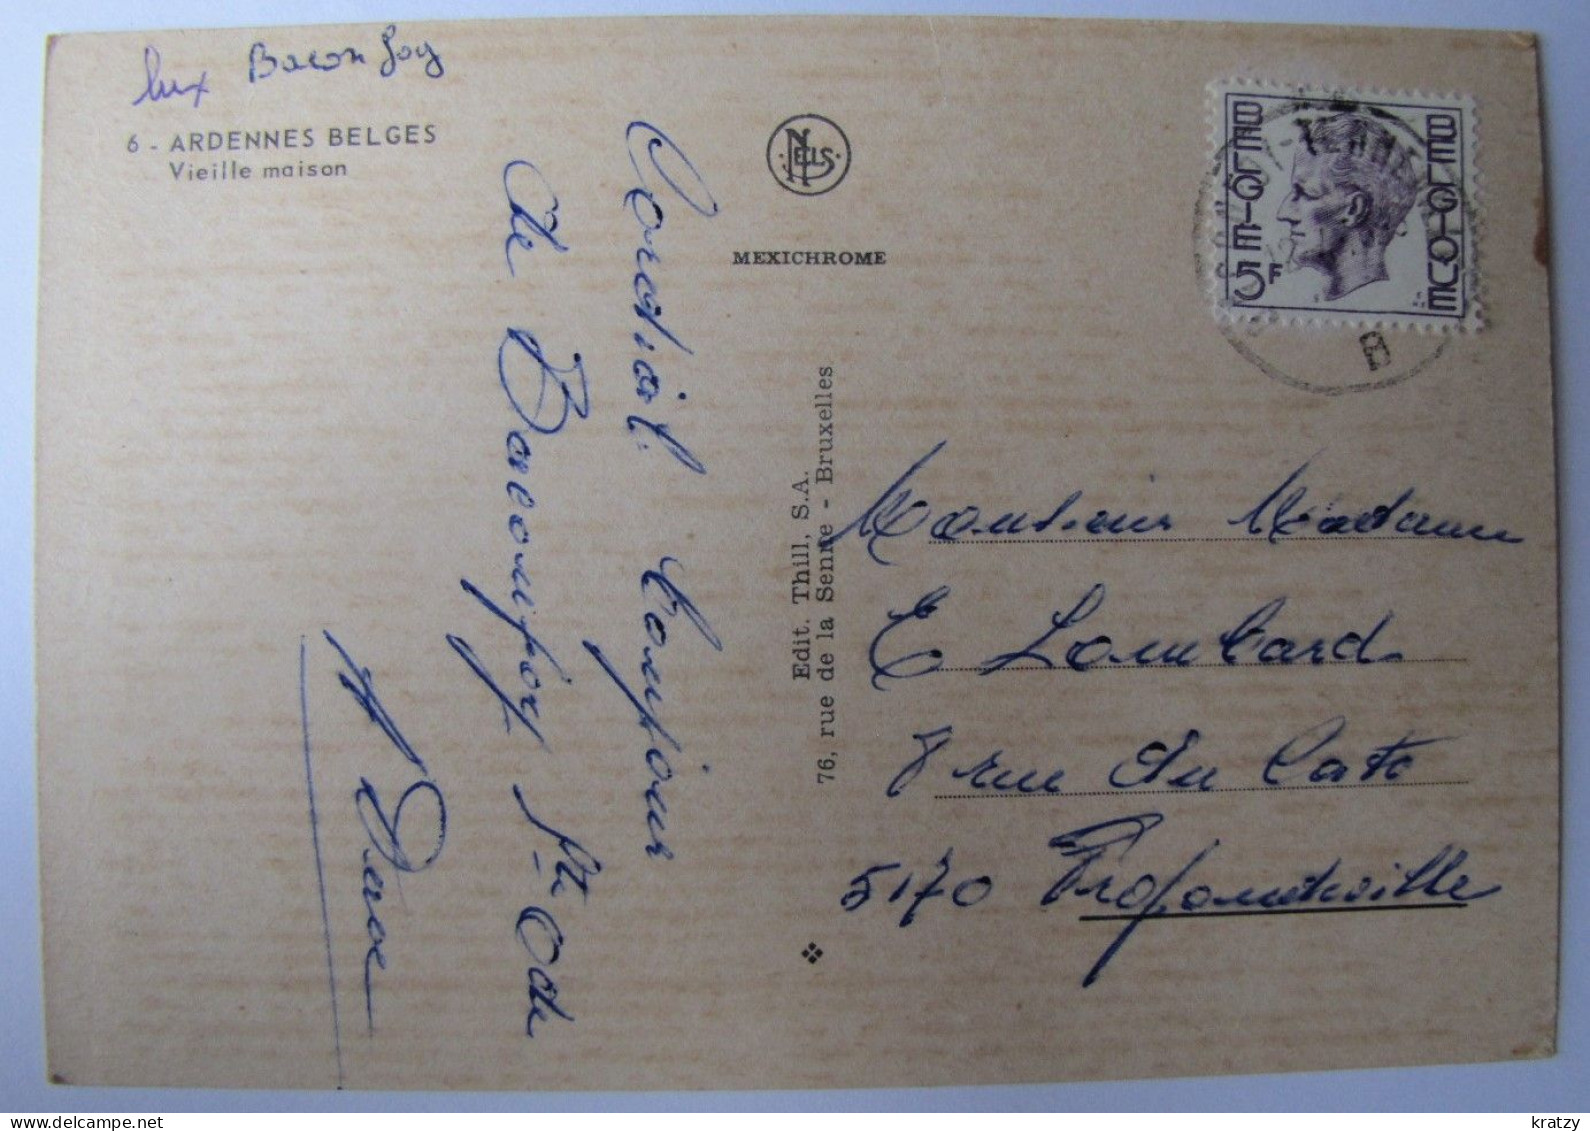 lux Baconfoy
6 - ARDENNES BELGES
Vieille maison
NELS
MEXICHROME
BELGIE BELGIQUE
5F
B
Cordial bonjour
de Baconfoy Ste Ode
Edit. Thill, S.A.
76, rue de la Senne - Bruxelles
Monsieur Madame
E Lombard
rue du
5170 Profondeville
www.delcampe.net
kratzy